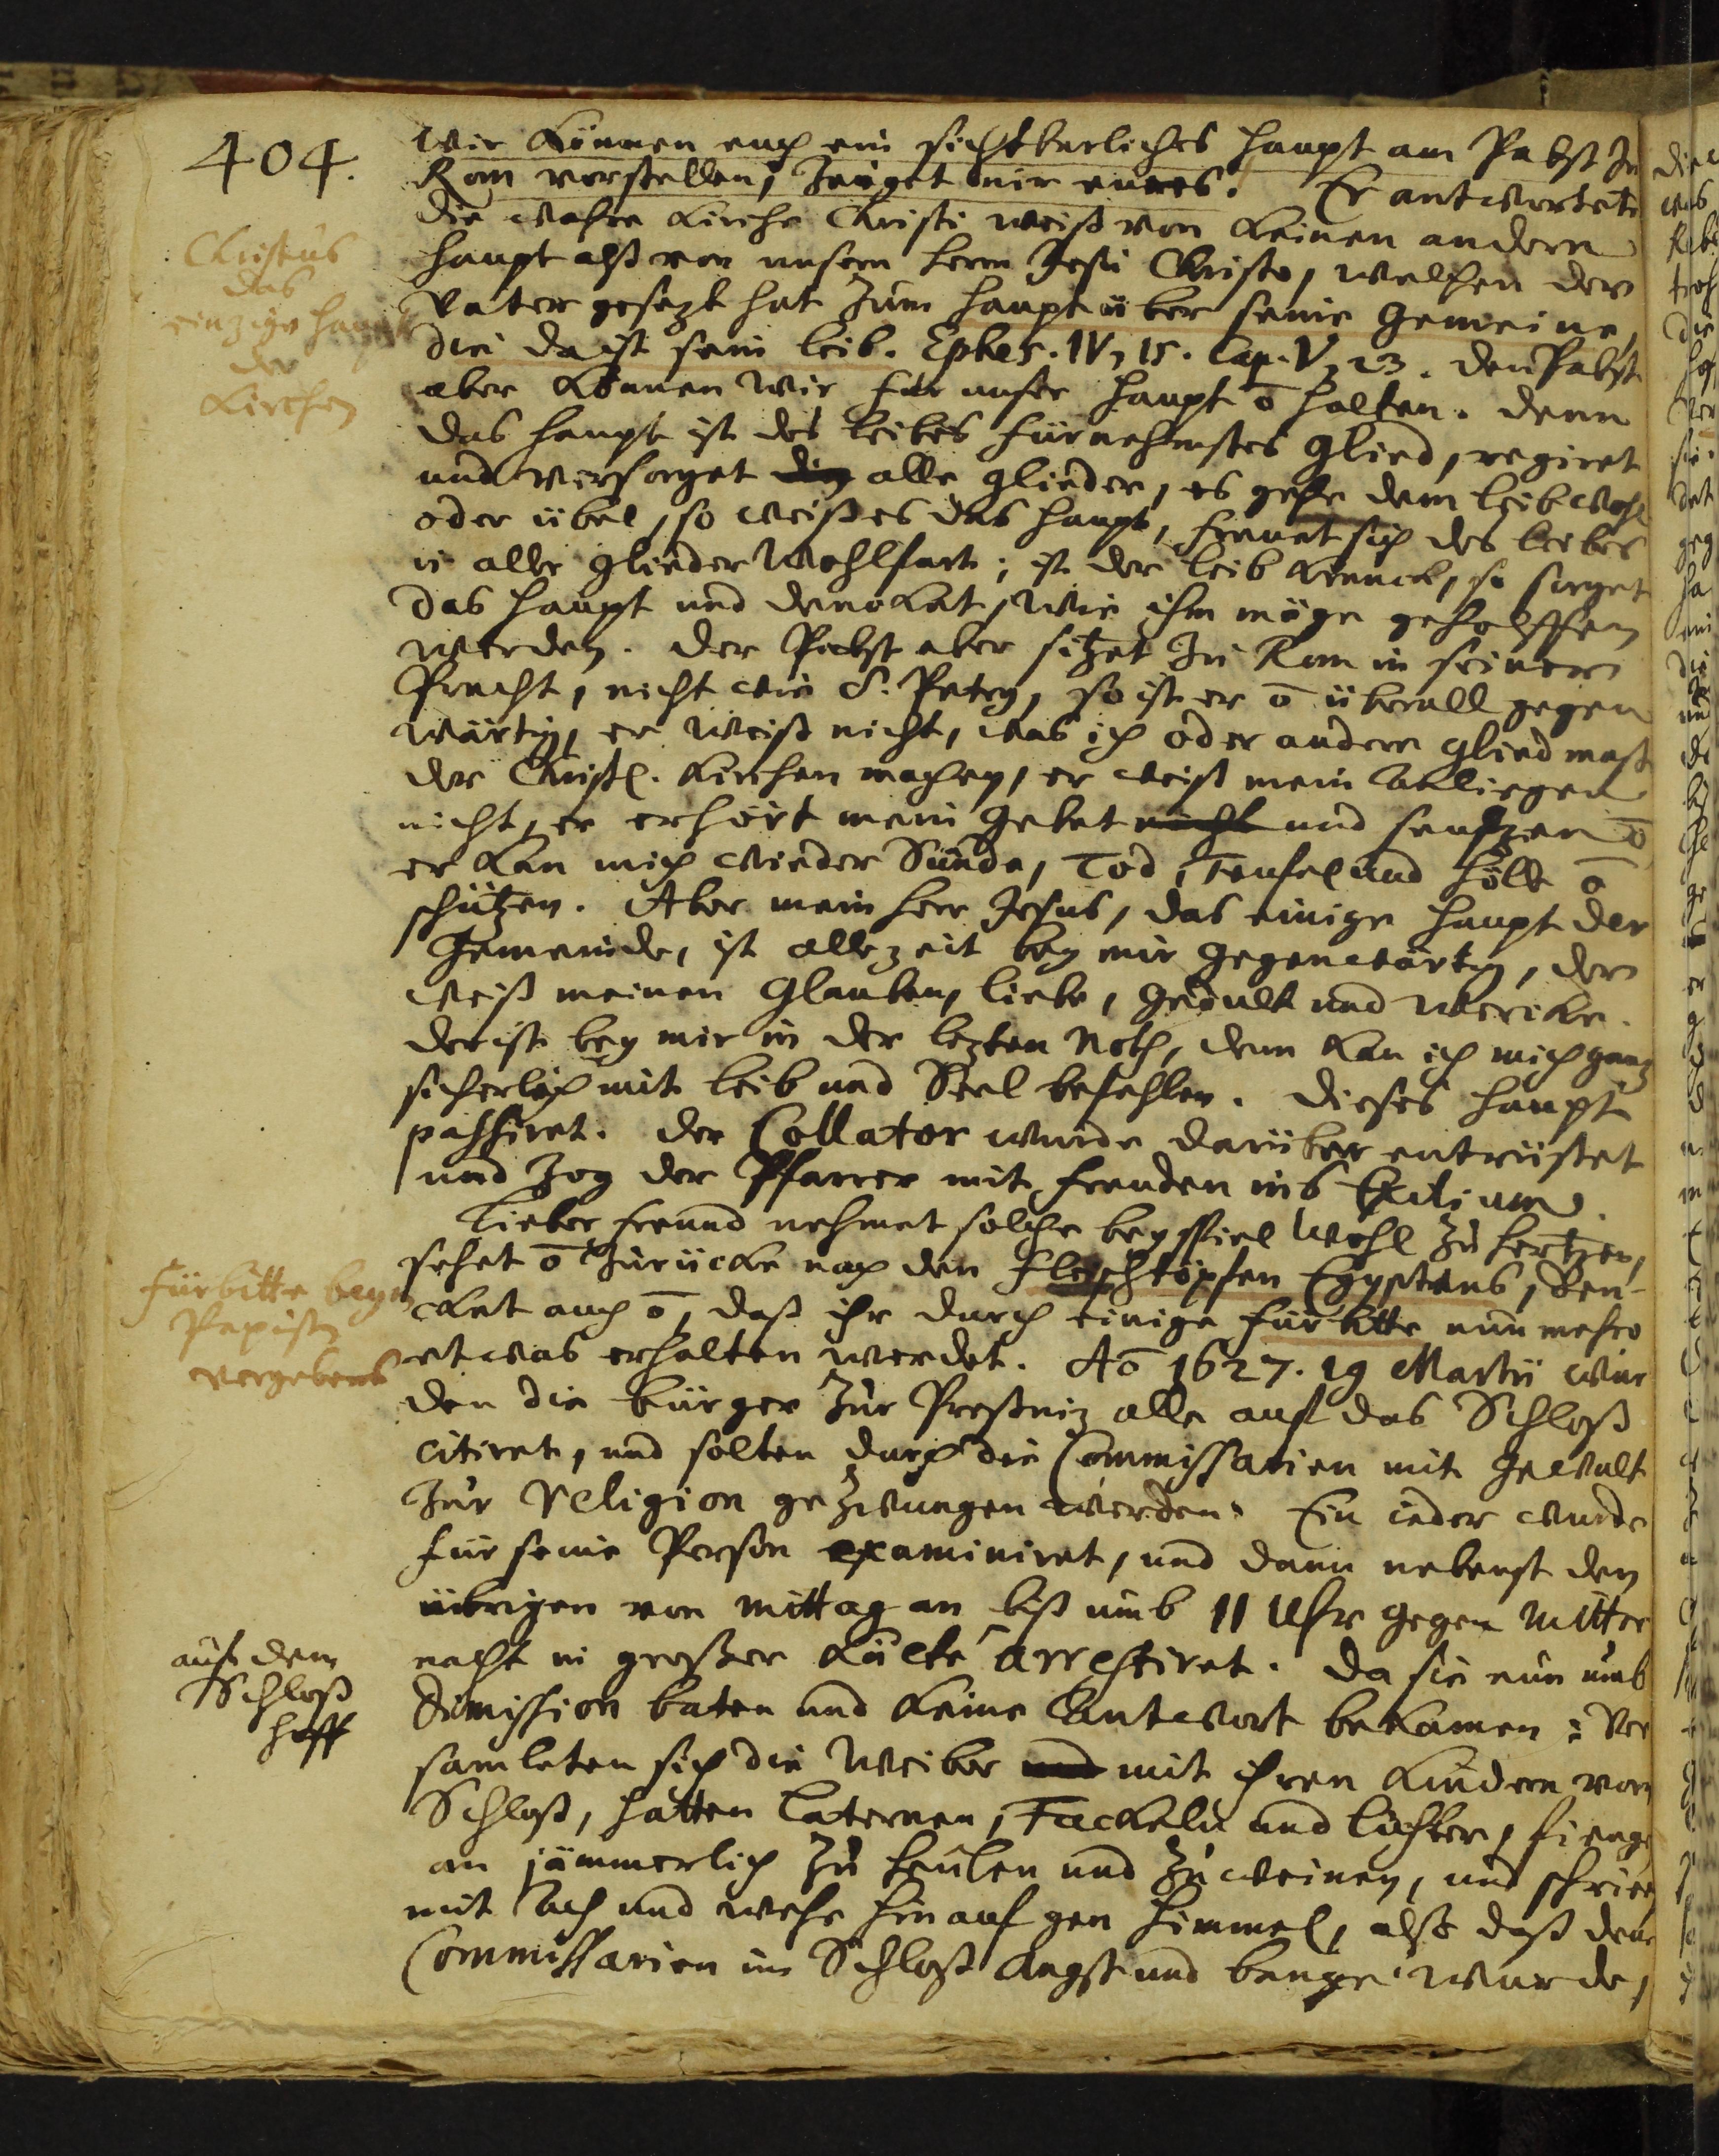 404.
Wir können euch ein sichtbarliches Haupt am Pabst zu
Rom vorstellen, zeiget mir eures. Er antwortete
die wahre Kirche Christi weiß von keinen andern
Haupt alß von unserm Herrn Jesu Christo, welchen der
Vater gesezt hat zum Haupt über seine Gemeine,
die da ist sein Leib. Ephes. IV, 15. Cap. V, 23. den Pabst
aber können wir für unser Haupt ō halten. denn
das Haupt ist des Leibes fürnehmstes Glied, regiret
und versorget die alle Glieder, es gehe dem Leib wohl
oder übel, so weiß es das Haupt, freuet sich des Leibes
u alle Glieder Wohlfart; ist der Leib kranck, so sorget
das Haupt und dencket, wie ihm möge geholffen
werden. Der Pabst aber sitzet zu Rom in seiner
Pracht, nicht wie S. Petrg, so ist er ō überall gegen
wärtig, er weiß nicht, was ich oder andere Gliedmaß
der Christl. Kirchen machen, er weiß mein Anliegen
nicht, er erhört mein Gebet nicht und seufzen ō
er kan mich wieder Sünde, Tod, Teufel und Höll ō
schützen. Aber mein Herr Jesus, das einige Haupt der
Gemeinde, ist allezeit bey mir gegenwärtig, der
weiß meinen Glauben, Liebe, Gedult und Wercke.
der ist bey mir in der lezten Noth, dem kan ich mich ganz
sicherlich mit Leib und Seel befehlen. dieses Haupt
passiret. Der Collator wurde darüber entrüstet
und zog der Pfarrer mit Freuden ins Exilium.
Lieber Freund nehmet solche beyspiel wohl zu Hertzen,
sehet ō zurücke nach den Fleischtöpfen Egyptens, Den-
cket auch ō, daß ihr durch einige Fürbitte nunmehro
etwas erhalten werdet. Aō 1627. 19 Martii wur
den die Bürger zur Preßniz alle auf das Schloß
citiret, und solten durch die Commissarien mit Gewalt
zur Religion gezwungen werden. Ein ieder wurde
für seine Person examiniret, und dann nebenst den
übrigen von Mittag an biß umb 11 Uhr gegen Mitter
nacht in großer Kälte arrestiret. Da sie nun umb
Dimission baten und keine Antwort bekamen: Ver
samleten sich die Weiber und mit ihren Kindern vorn
Schloß, hatten Laternen, Fackeln und Lichter, fienge
an jämmerlich zu heulen und zu weinen, und schrien
mit Ach und Wehe hinauf gen Himmel, also daß den
Commissarien im Schloß Angst und bange wurde,
Christus
das
einzige Haupt
der
Kirchen
Fürbitte beym
Papisten
vergebens
auf dem
Schloß
Hoff